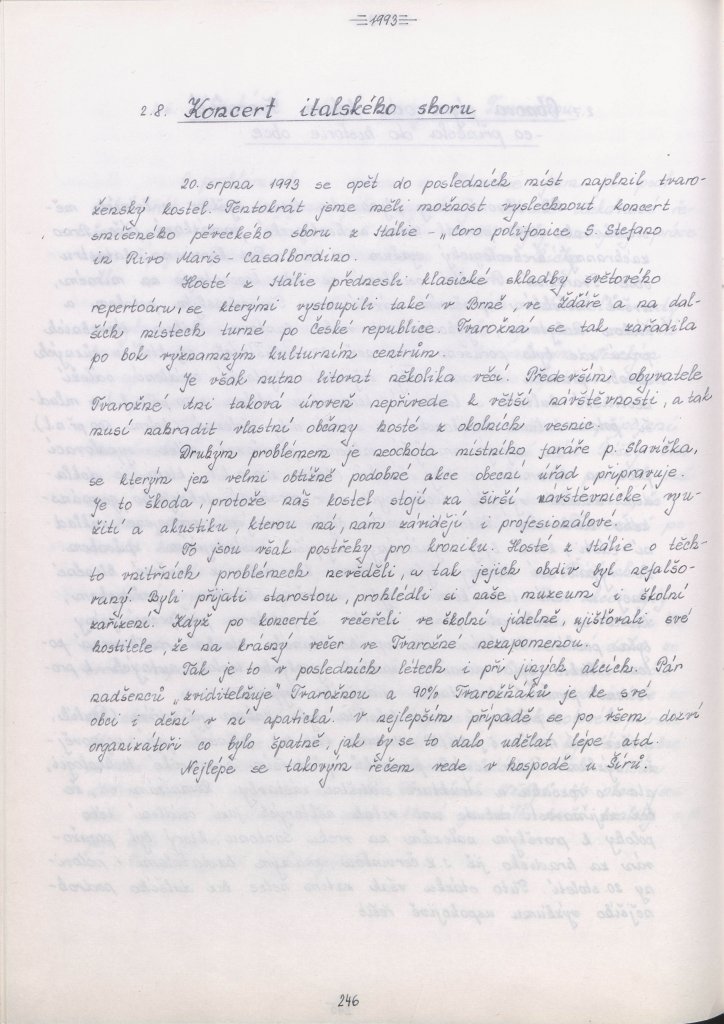 1993
2.8. Koncert italského sboru
20. srpna 1993 se opět do posledních míst naplnil tvaro-
ženský kostel. Tentokrát jsme měli možnost vyslechnout koncert
smíšeného pěveckého sboru z Itálie - „Coro polifonice S. Stefano
in Rivo Maris - Casalbordino.
Hosté z Itálie přednesli klasické skladby světového
repertoáru, se kterými vystoupili také v Brně, ve Žďáře a na dal-
ších místech turné po České republice. Tvarožná se tak zařadila
po bok významným kulturním centrům.
Je však nutno litovat několika věcí. Především obyvatele
Tvarožné. Ani taková úroveň nepřivede k větší návštěvnosti, a tak
musí nahradit vlastní občany hosté z okolních vesnic.
Druhým problémem je neochota místního faráře p. Slavíčka,
se kterým jen velmi obtížně podobné akce obecní úřad připravuje.
Je to škoda, protože náš kostel stojí za širší návštěvnické vyu-
žití a akustiku, kterou má, nám závidějí i profesionálové.
To jsou však postřehy pro kroniku. Hosté z Itálie o těch-
to vnitřních problémech nevěděli, a tak jejich obdiv byl nefalšo-
vaný. Byli přijati starostou, prohlédli si naše muzeum i školní
zařízení. Když po koncertě večeřeli ve školní jídelně, ujišťovali své
hostitele, že na krásný večer ve Tvarožné nezapomenou.
Tak je to v posledních létech i při jiných akcích. Pár
nadšenců „zviditelňuje" Tvarožnou a 90% Tvarožňáků je ke své
obci i dění v ní apatická. V nejlepším případě se po všem dozví
organizátoři co bylo špatně, jak by se to dalo udělat lépe atd.
Nejlépe se takovým řečem vede v hospodě u Šírů.
246